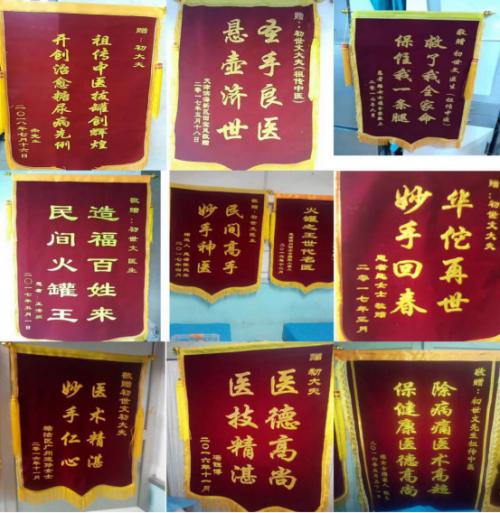 赠：初大夫
祖传中医火罐创辉煌
开创治愈糖尿病先例
二〇一八年七月十六日
赠：初世文大夫(祖传中医)
圣手良医
悬壶济世
二零一七年五月十八日
敬赠：初世文医生(祖传中医)
救了我全家命
保住我一条腿
敬赠：初世文医生
造福百姓来
民间火罐王
二〇一七年五月一日
敬赠：初世文医生
民间高手
妙手神医
火罐之王世代名医
敬赠：初世文大夫
华佗再世
妙手回春
二零一七年五月
敬赠初世文初大夫
医术精湛
妙手仁心
二〇一六年十一月
赠 初大夫
医德高尚
医技精湛
二〇一六年十一月
敬赠：初世文先生祖传中医
除病痛医术高超
保健康医德高尚